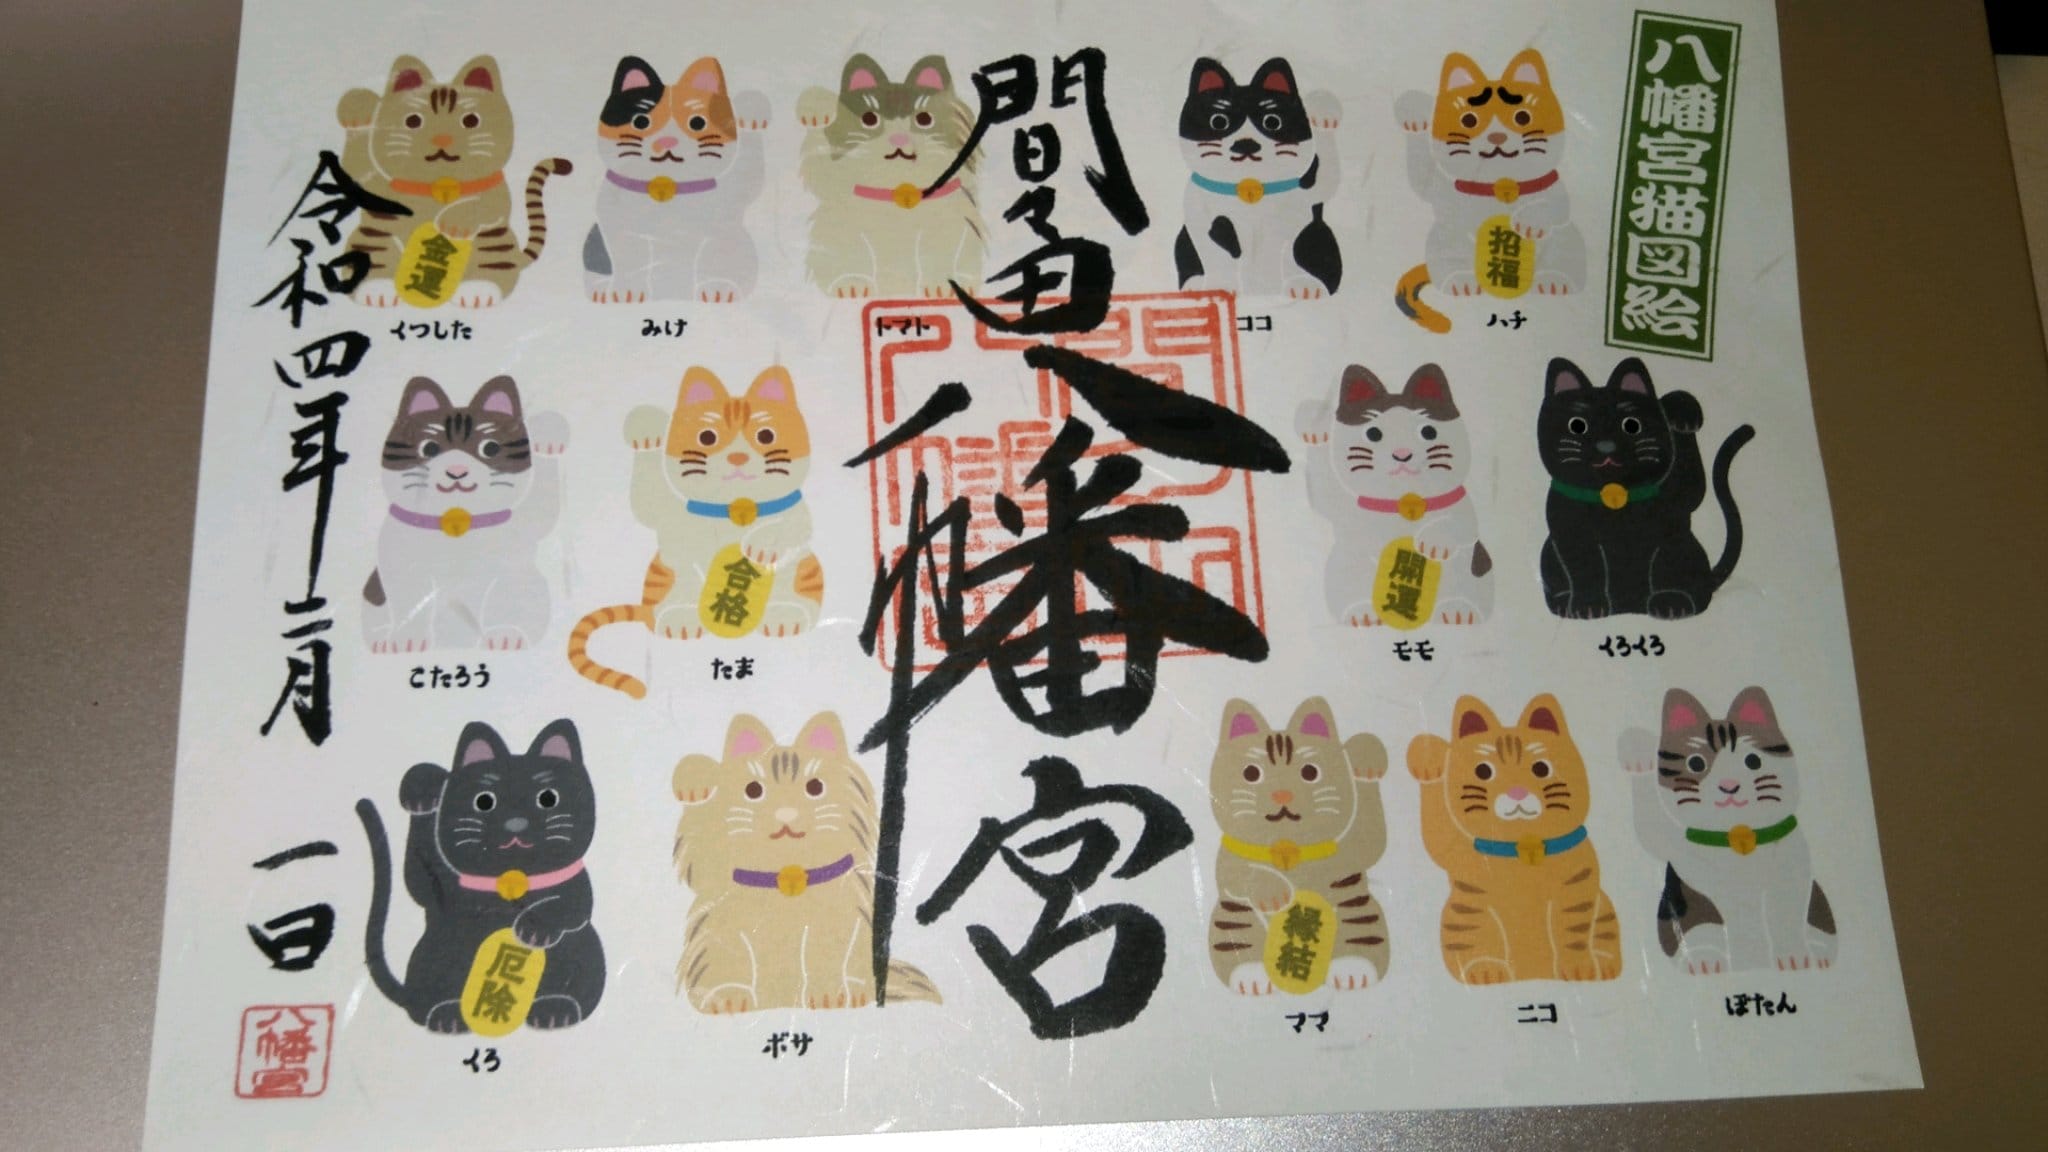 八幡宮猫図絵
間々田八幡宮
令和四年二月一日
八幡宮
金運
くつした
みけ
トマト
ココ
招福
ハチ
こたろう
合格
たま
開運
モモ
いろいろ
厄除
いろ
ボサ
縁結
ママ
ニコ
ぼたん